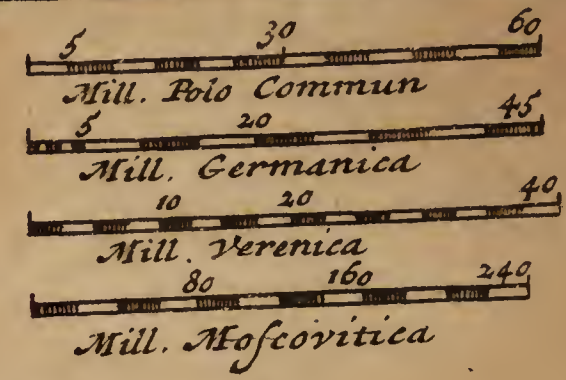 5 30 60
Mill. Polo Commun
5 20 45
Mill. Germanica
10 20 40
Mill. Verenica
80 160 240
Mill. Moſcovitica